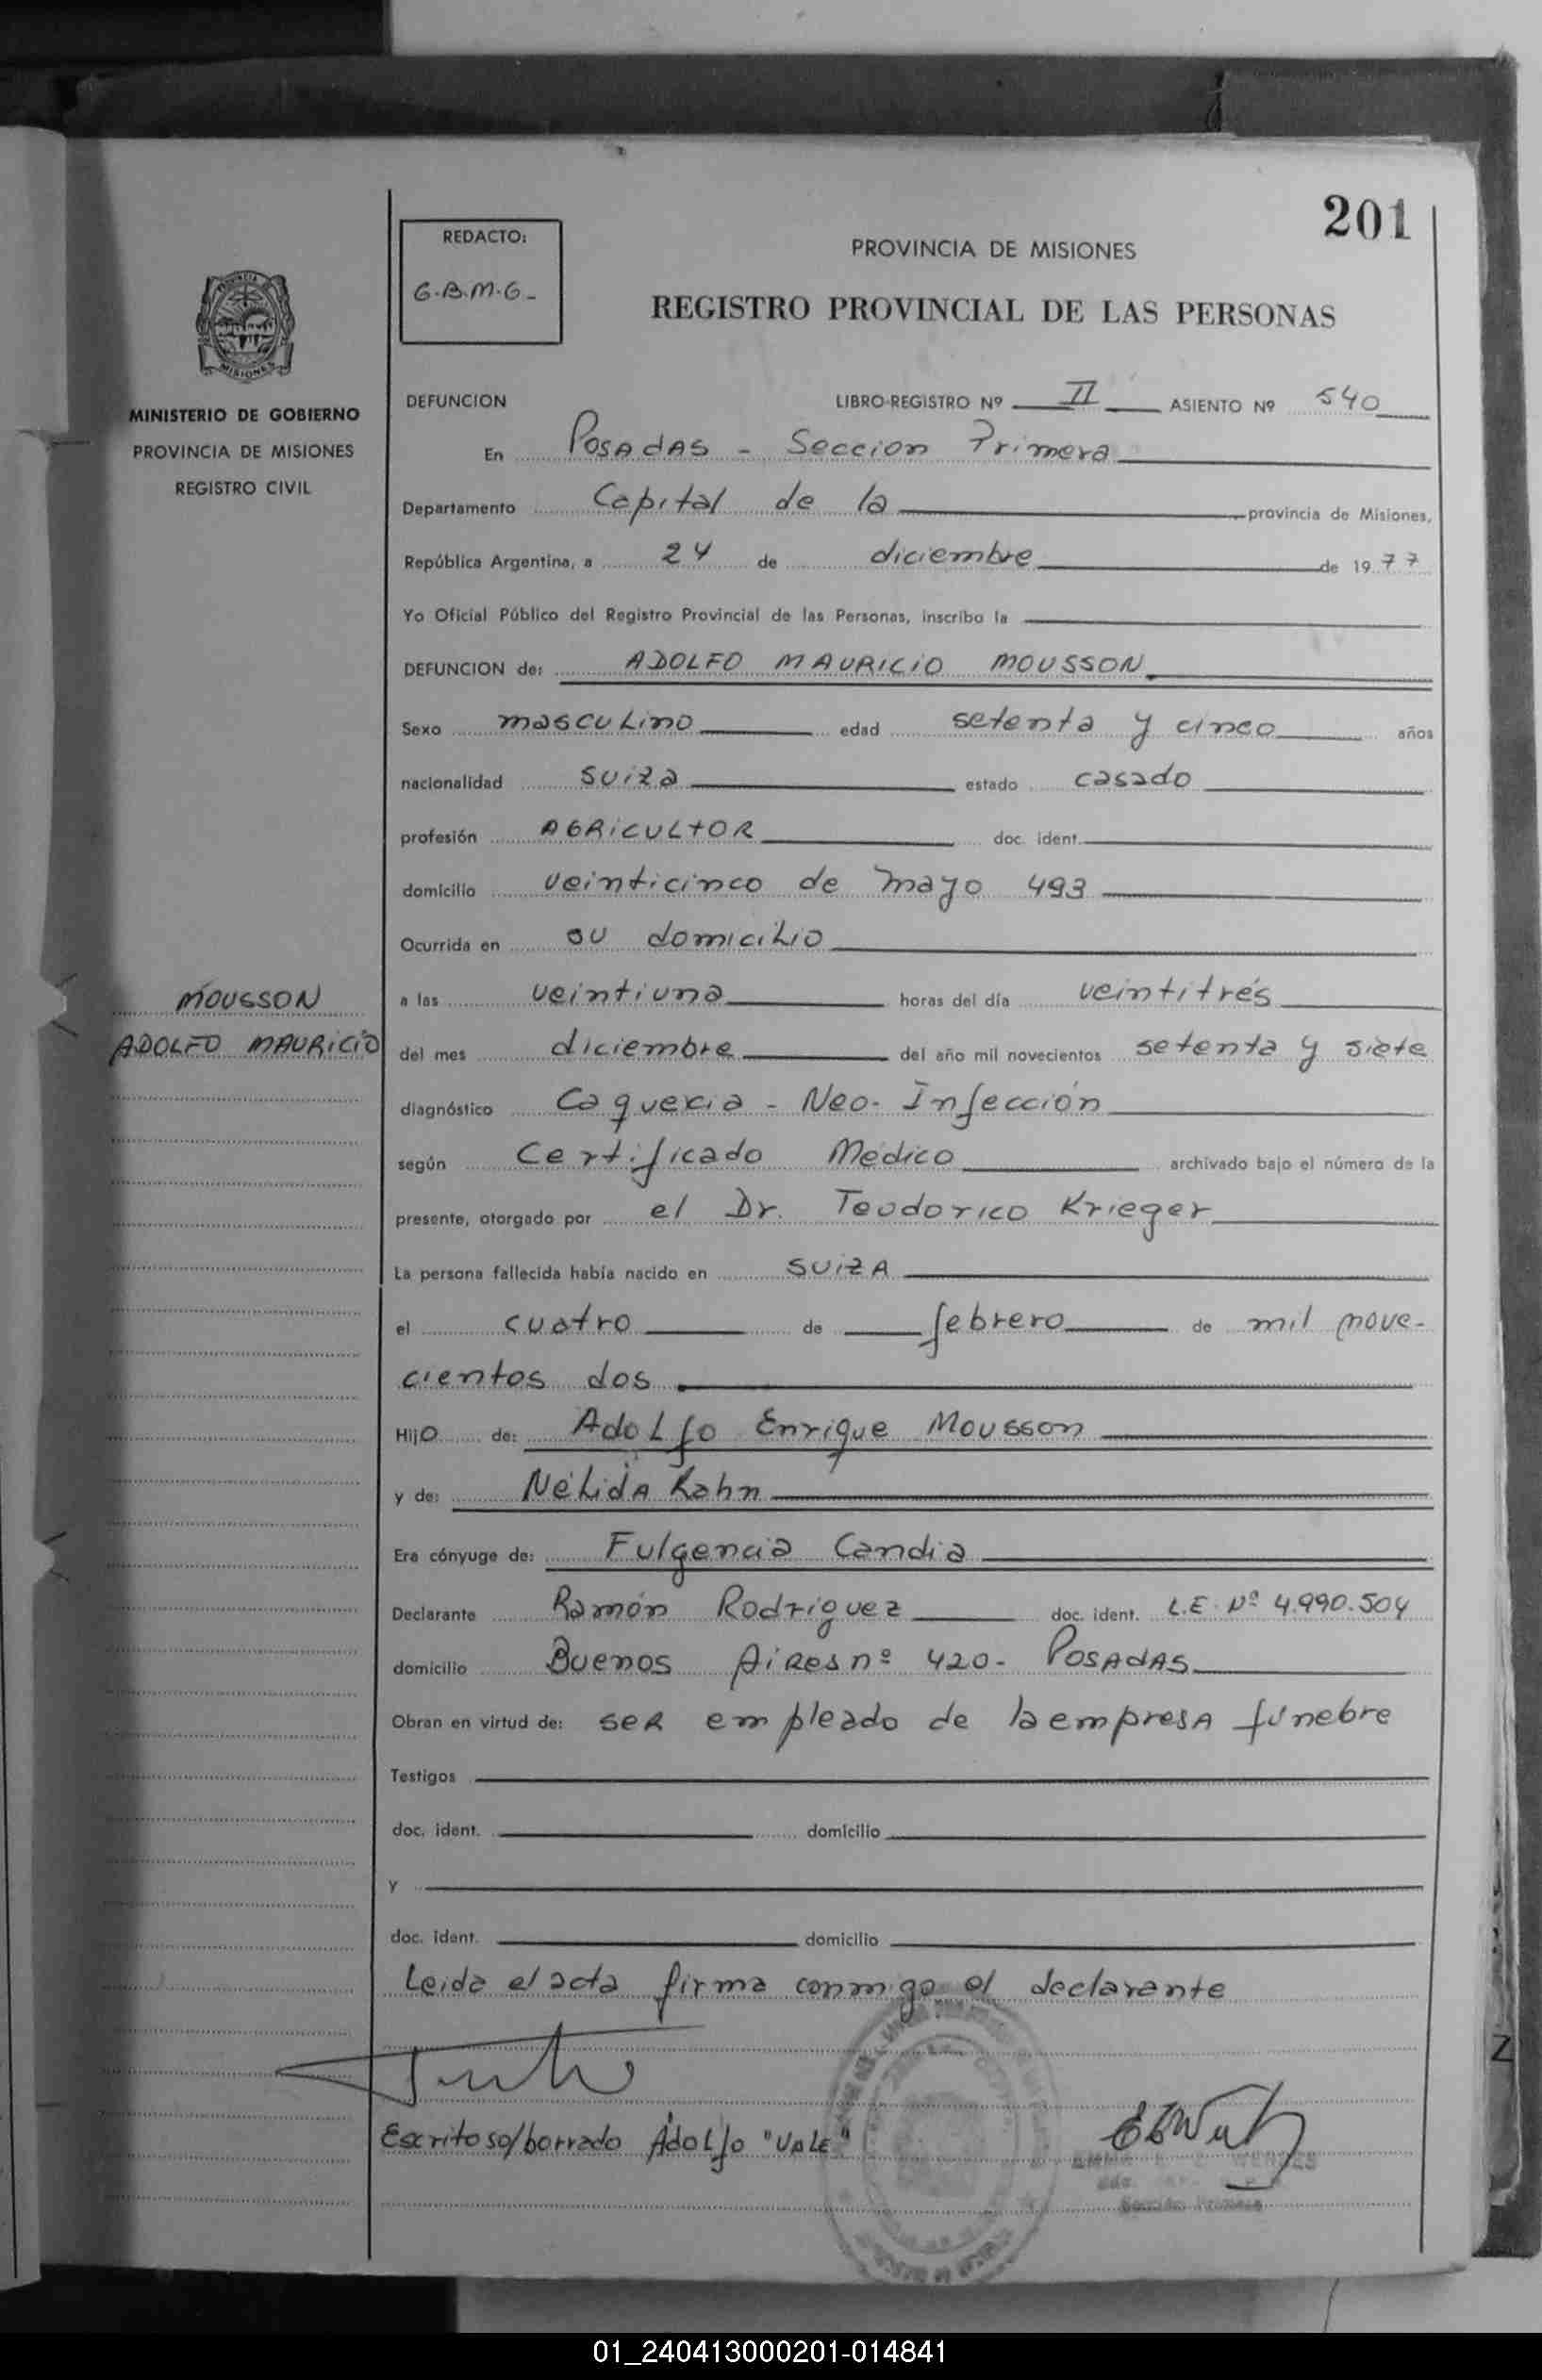 201
REDACTO:
G.B.M.G-
PROVINCIA DE MISIONES
REGISTRO PROVINCIAL DE LAS PERSONAS
PROVINCIA
MISIONES
MINISTERIO DE GOBIERNO
PROVINCIA DE MISIONES
REGISTRO CIVIL
DEFUNCION LIBRO-REGISTRO Nº II ASIENTO Nº 540
En POSADAS - Seccion Primera
Departamento Capital de la provincia de Misiones,
República Argentina, a 24 de diciembre de 1977
Yo Oficial Público del Registro Provincial de las Personas, inscribo la
DEFUNCION de: ADOLFO MAURICIO MOUSSON.
Sexo masculino edad setenta y cinco años
nacionalidad suiza estado casado
profesión AGRICULTOR doc. ident.
domicilio veinticinco de mayo 493
Ocurrida en su domicilio
MOUSSON
ADOLFO MAURICIO
a las veintiuna horas del día veintitrés
del mes diciembre del año mil novecientos setenta y siete
diagnóstico Caquexia - Neo- Infección
según Certificado Medico archivado bajo el número de la
presente, otorgado por el Dr. Teodorico Krieger
La persona fallecida había nacido en SUIZA
el cuatro de febrero de mil nove-
cientos dos
Hijo de: Adolfo Enrique Mousson
y de: Nélida Kahn
Era cónyuge de: Fulgencia Candia
Declarante Ramón Rodriguez doc. ident. L.E. Nº 4.990.504
domicilio Buenos Aires nº 420- POSADAS
Obran en virtud de: ser empleado de la empresa fúnebre
Testigos
doc. ident. domicilio
y
doc. ident. domicilio
Leida el acta firma conmigo el declarante
Escrito so/borrado Adolfo "VALE"
Sección Primera
01_240413000201-014841